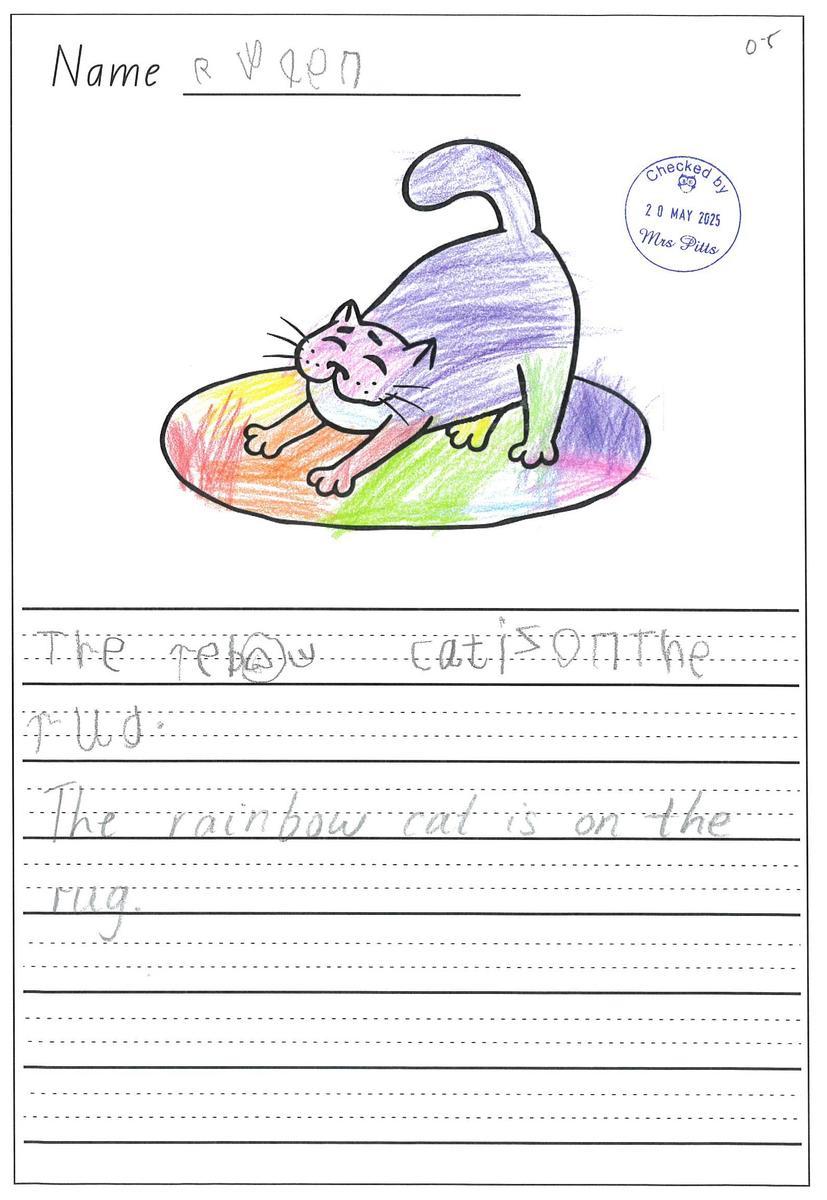 Name
0-5
Checked by
20 MAY 2025
Mrs Pitts
The rebow cat is on The
rug.
The rainbow cat is on the
rug.